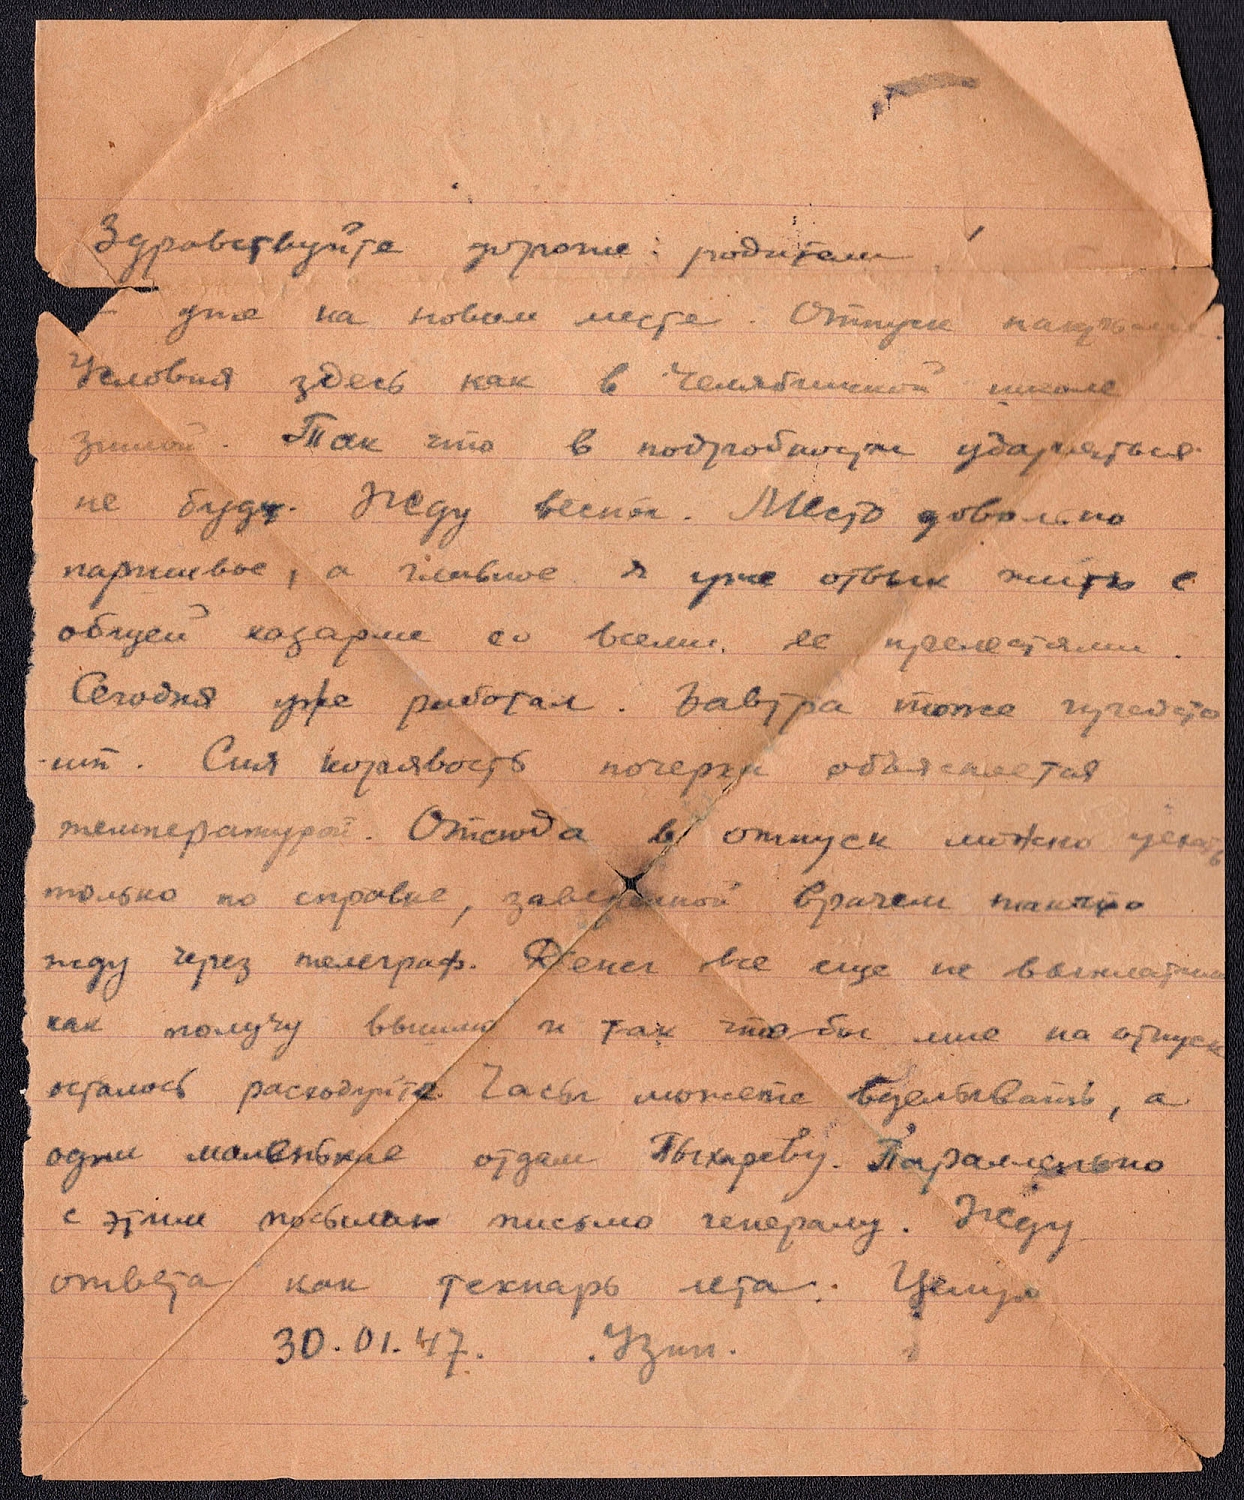 Здравствуйте дорогие родители!
уже на новом месте. Отпуск
Условия здесь как в Челябинской школе
зимой. Так что в подробности ударяться
не буду. Жду весны. Место довольно
паршивое, а главное я уже отвык жить в
общей казарме со всеми ее прелестями.
Сегодня уже работал. Завтра тоже предсто
-ит. Сия корявость почерка объясняется
температурой. Отсюда в отпуск можно уехать
только по справке, заверенной врачем
жду через телеграф. Денег все еще не выплатили
как получу вышлю и так чтобы мне на отпуск
осталось расходуйте. Часы можете, а
одни маленькие отдам Пыхареву. Параллельно
с этим посылаю письмо генералу. Жду
ответа как технарь лета. Целую
30.01.47.